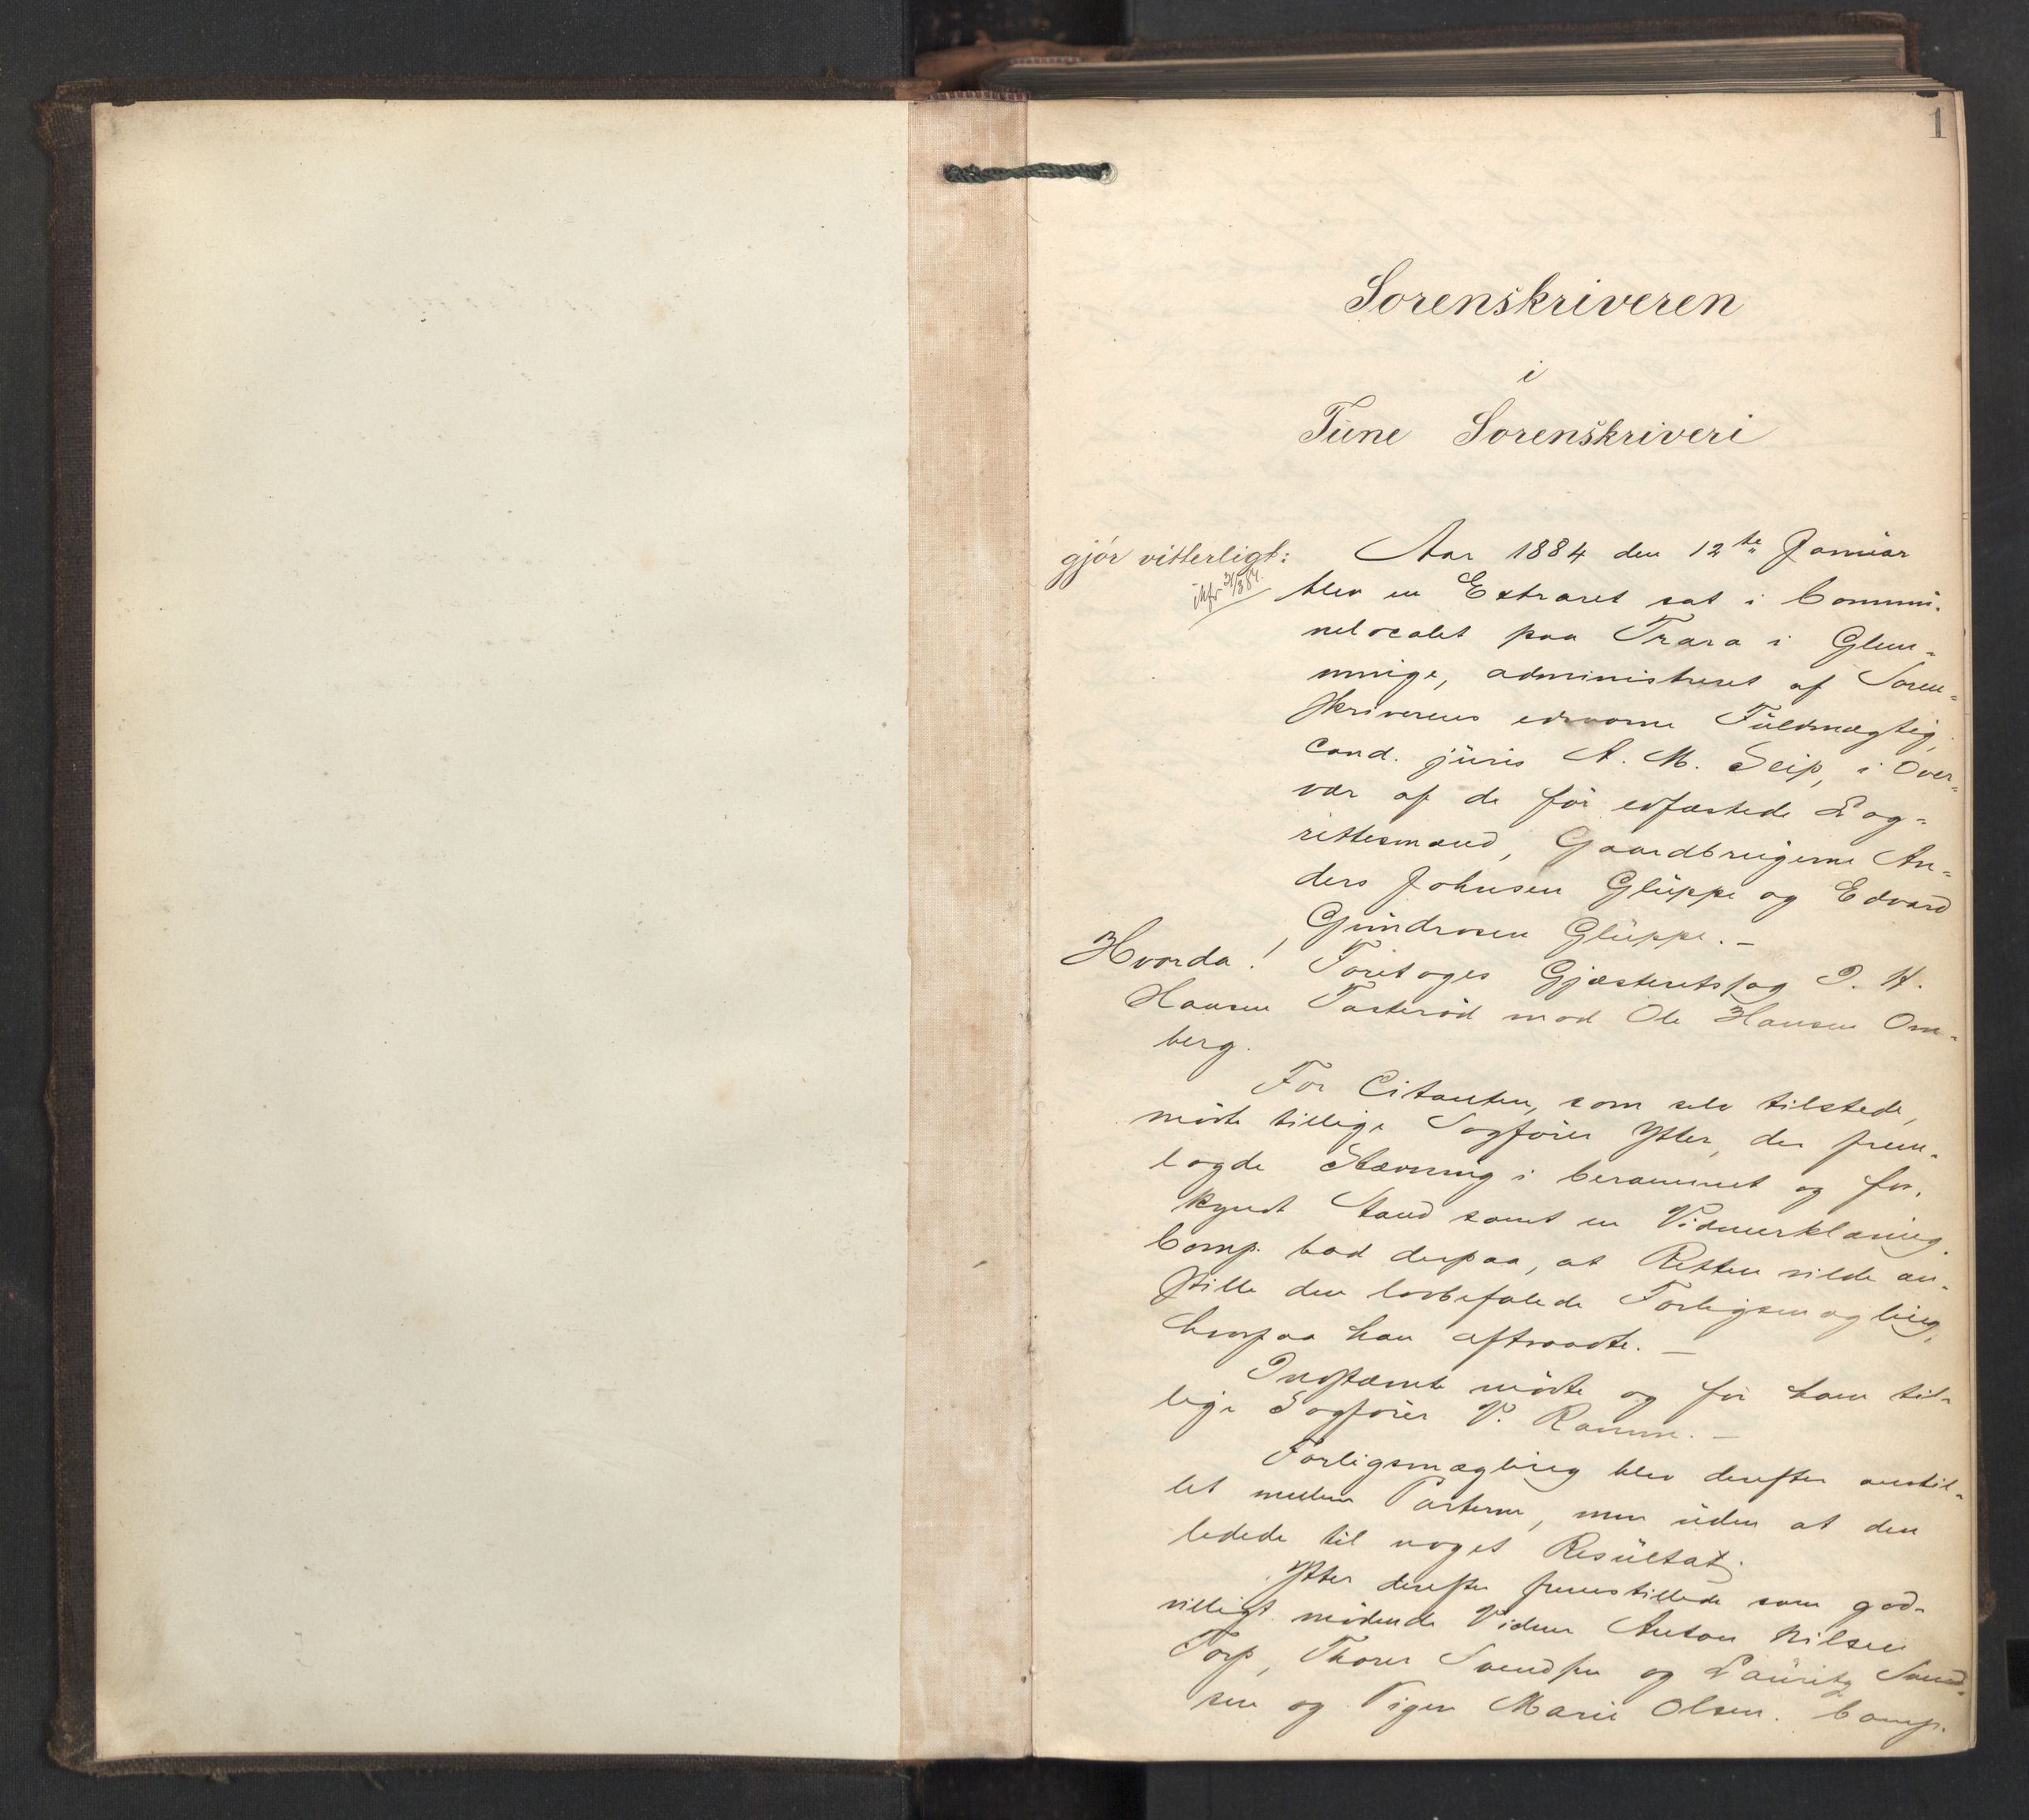 1
Sorenskriveren
i
Tüne Sorenskriveri
gjør vitterligt: Aar 1884 den 12te Januar
blev en Extraret sat i Commü-
nelocalet paa Trara i Glem-
minge, administreret af Soren-
skriverens edsvorne Füldmægtig,
Cand. jüris A. M. Seip, i Over-
vær af de før edfæstede Lag-
rettesmænd, Gaardbrügerne An-
ders Johnsen Glüppe og Edvard
Gündrosen Glüppe. -
Hvorda! Foretoges Gjæsteretssag J. H.
Hansen Tasterød mod Ole Hansen Om-
berg.
For Citanten, som selv tilstede,
mødte tillige Sagfører Ytter, der frem-
lagde Stævning i berammet og for-
kyndt Stand samt en
Comp. bad derpaa, at Retten vilde an-
stille den lovbefalede Forligsmægling,
hvorpaa han aftraadte. -
Indstævnte mødte og for ham til-
lige Sagfører V. Ramm. -
Forligsmægling blev derefter anstil-
let mellem Parterne, men üden at den
ledede til noget Resültat.
Ytter derefter fremstillede som god-
villigt mødende Vidner Anton Nilsen
Torp, Thorer Svendsen og Laüritz Svend-
sen og Pigen Marie Olsen. Comp.